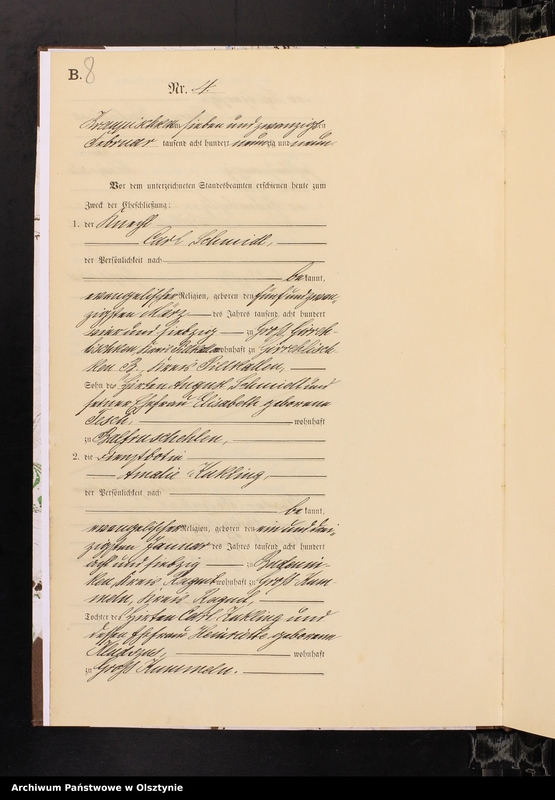 B. 8
Nr. 4.
am sieben und zwanzigsten
Februar tausend acht hundert neunzig und neun
Vor dem unterzeichneten Standesbeamten erschienen heute zum
Zweck der Eheschließung:
1. der Knecht
Carl Schmidt,
der Persönlichkeit nach
be kannt,
evangelischer Religion, geboren den fünf und zwan-
zigsten März des Jahres tausend acht hundert
vier und siebzig zu Groß
Kreis Pillkallen wohnhaft zu
Kreis Pillkallen,
Sohn des Hirten August Schmidt und
seiner Ehefrau Elisabeth geborene
Tesch, wohnhaft
zu
2. die Dienstbotin
Amalie
der Persönlichkeit nach
be kannt,
evangelischer Religion, geboren den ein und drei-
zigsten Januar des Jahres tausend acht hundert
acht und siebzig zu
Kreis Ragnit wohnhaft zu Groß Kum-
meln, Kreis Ragnit,
Tochter des Hirten Carl und
dessen Ehefrau Heinriette geborene
wohnhaft
zu Groß Kummeln.
Archiwum Państwowe w Olsztynie